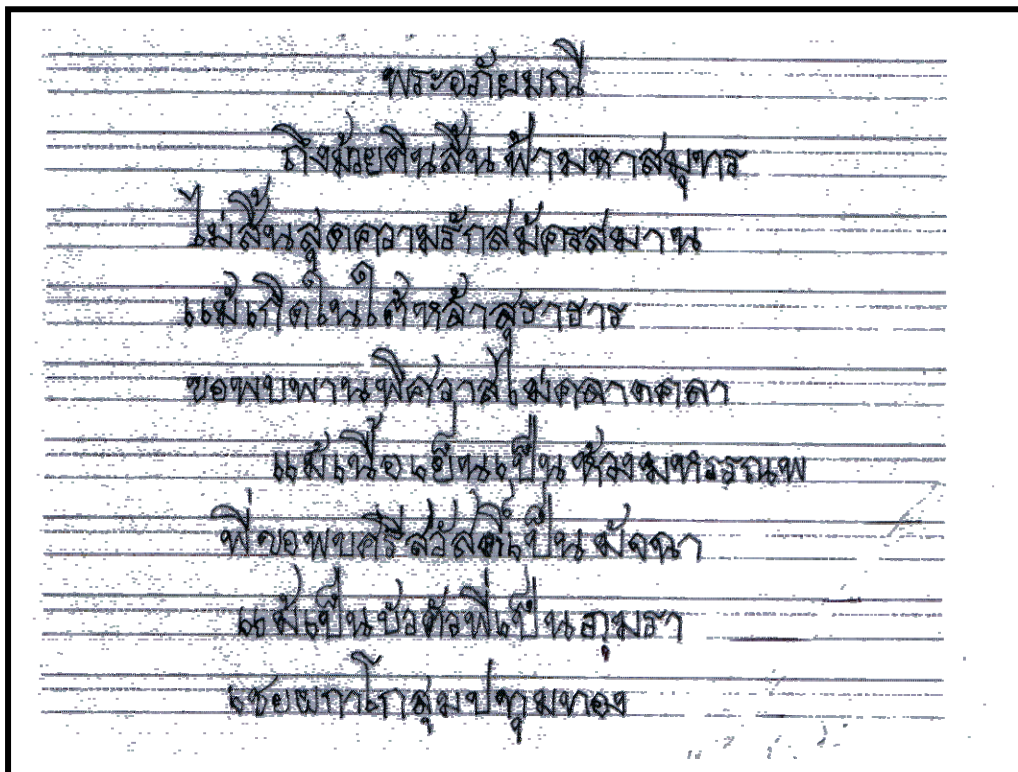 พระอภัยมณี
ถึงม้วยดินสิ้นฟ้ามหาสมุทร
ไม่สิ้นสุดความรักสมัครสมาน
แม้เกิดในใต้หล้าสุธาธาร
ขอพบพานพิศวาสไม่คลาดคลา
แม้เนื้อเย็นเป็นห้วงมหรรณพ
พี่ขอพบศรีสวัสดิ์เป็นมัจฉา
แม้เป็นบัวตัวพี่เป็นภุมรา
เชยผกาโกสุมปทุมทอง